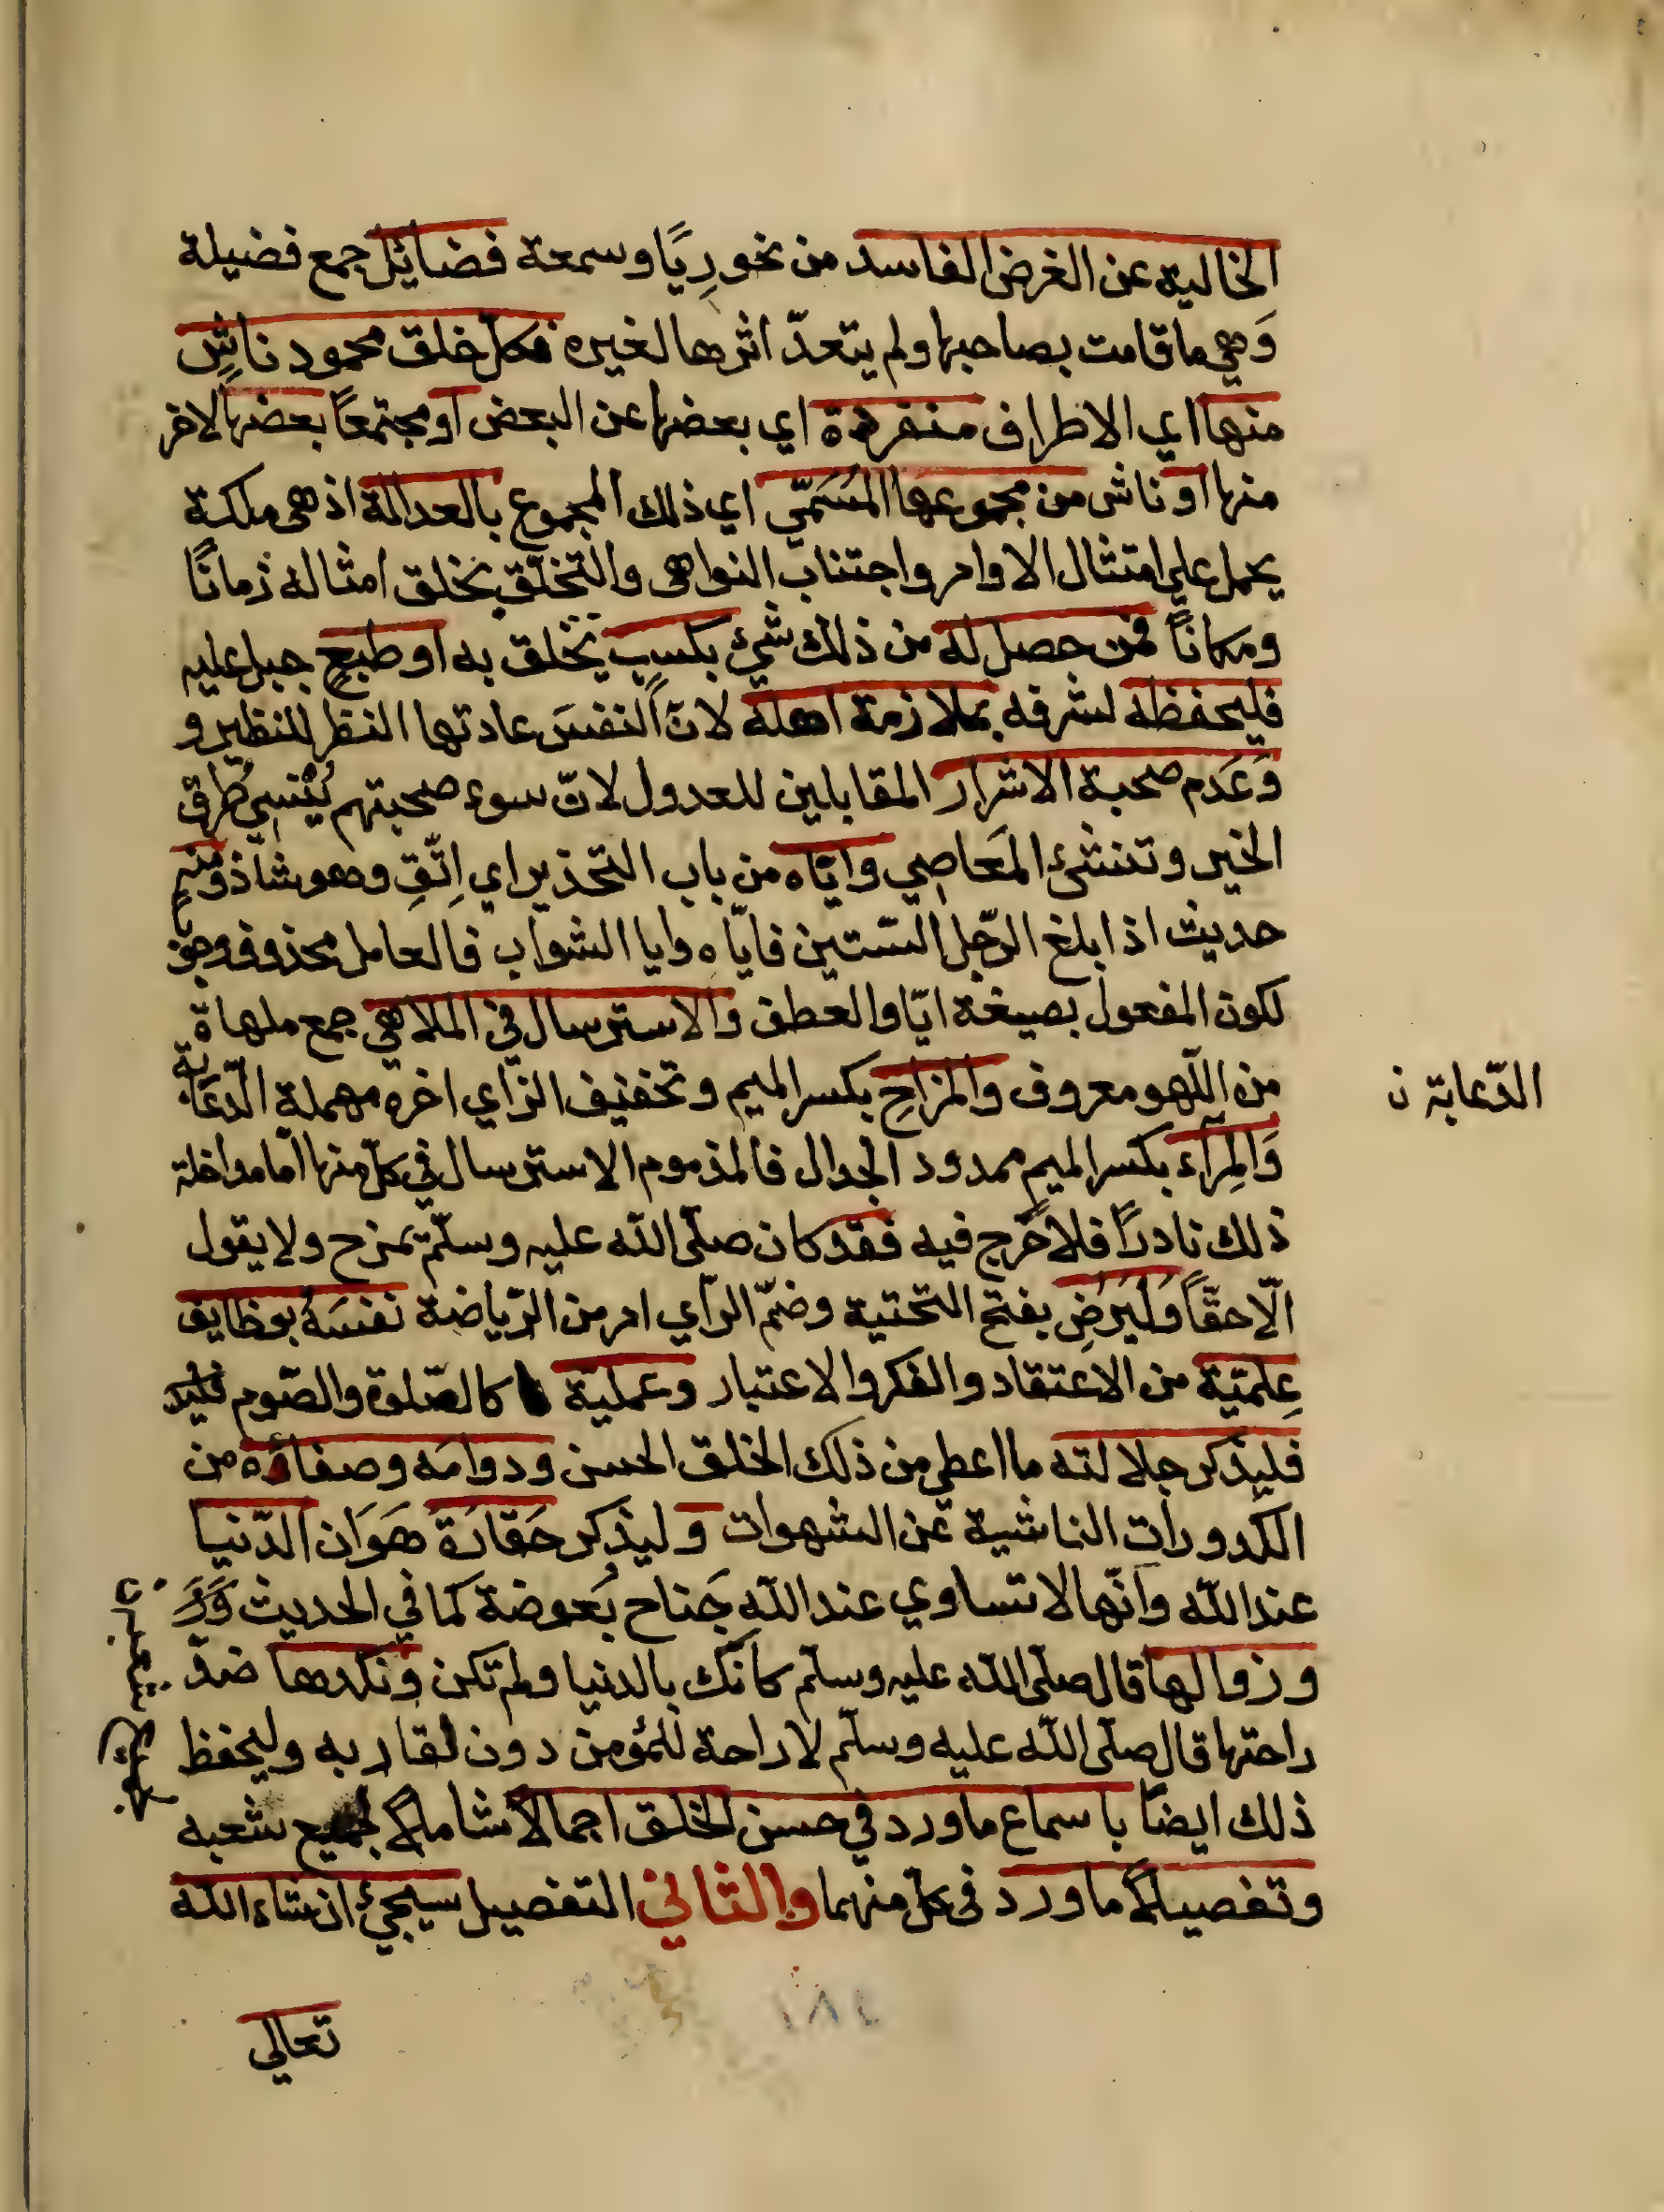 الخالية عن الغرض الفاسد من نحو رِيًا وسمعة فضايل جمع فضيلة
وَهي ما قامت بصاحبها ولم يتعدّ اثرها لغيره فكل خلق محمود ناشٍ
منها اي الاطراف منفردة اي بعضها عن البعض او مجتمعًا بعضها لاخر
منها او ناش من مجموعها المُسَمّي اي ذلك المجموع بالعدالة اذ هي ملكة
يحمل علي امتثال الاوامر واجتناب النواهى والتخلّق بخلق امثاله زمانًا
ومكانًا فمن حصل له من ذلك شيئ بكسبٍ تخلق به او طبعٍ جبل عليه
فليحفظه لشرفه بملازمة اهله لانّ النفسَ عادتها النظر للنظير و
وَعَدم صحبة الاشرار المقابلين للعدول لانّ سوء صحبتهم يُنْسِي طُرق
الخير وتنشئ المَعَاصِي وايّاه من باب التحذير اي اِتّقِ وهو شاذ ومنه
حديث اذا بلغ الرّجل السّتين فايّاه وايا الشواب فالعامل محذوف وجوبًا
لكون المفعول بصيغة ايّا والعطف والاسترسال في الملاهي جمع ملهاة
من اللّهو معروف والمزاحِ بكسر الميم وتخفيف الزاي اخره مهملة الدّعَابة
الدّعابة ن
وَالمِرَآء بكسر الميم ممدود الجدال فالمذموم الاسترسال في كلّ منها امّا مداخلة
ذلك نادرًا فلا حَرَج فيه فقد كان صلّى الله عليه وسلّم يمزح ولا يقول
الّا حقّاً وَليَرُضِ بفتح التحتية وضمّ الرّاي امر من الرّياضة نفسَهُ بوظايف
عِلميّة من الاعتقاد والفكر والاعتبار وعملية كالصّلوة والصّوم فليذ
فليذكر جلالته ما اعطي من ذلك الخلق الحسن ودوامَه وصفائه من
الكدورات الناشية عن الشهوات وليذكر حَقَارَة هَوَان الدّنيا
عند الله وانّها لا تساوي عند الله جَناح بَعوضة كما في الحديث
وزوالها قال صلّى الله عليه وسلّم كانّك بالدنيا ولم تكن ونكدها ضدّ
راحتها قال صلّى الله عليه وسلّم لا راحة للمؤمن دون لقا ربه وليحفظ
ذلك ايضًا باسماع ما ورد في حسن الخلق اجمالاً شاملاً لجميع شعبه
وتفصيلاً ما ورد فى كلّ منهما والثاني التفصيل سيجئ ان شاء الله
١٨٤
تعالي